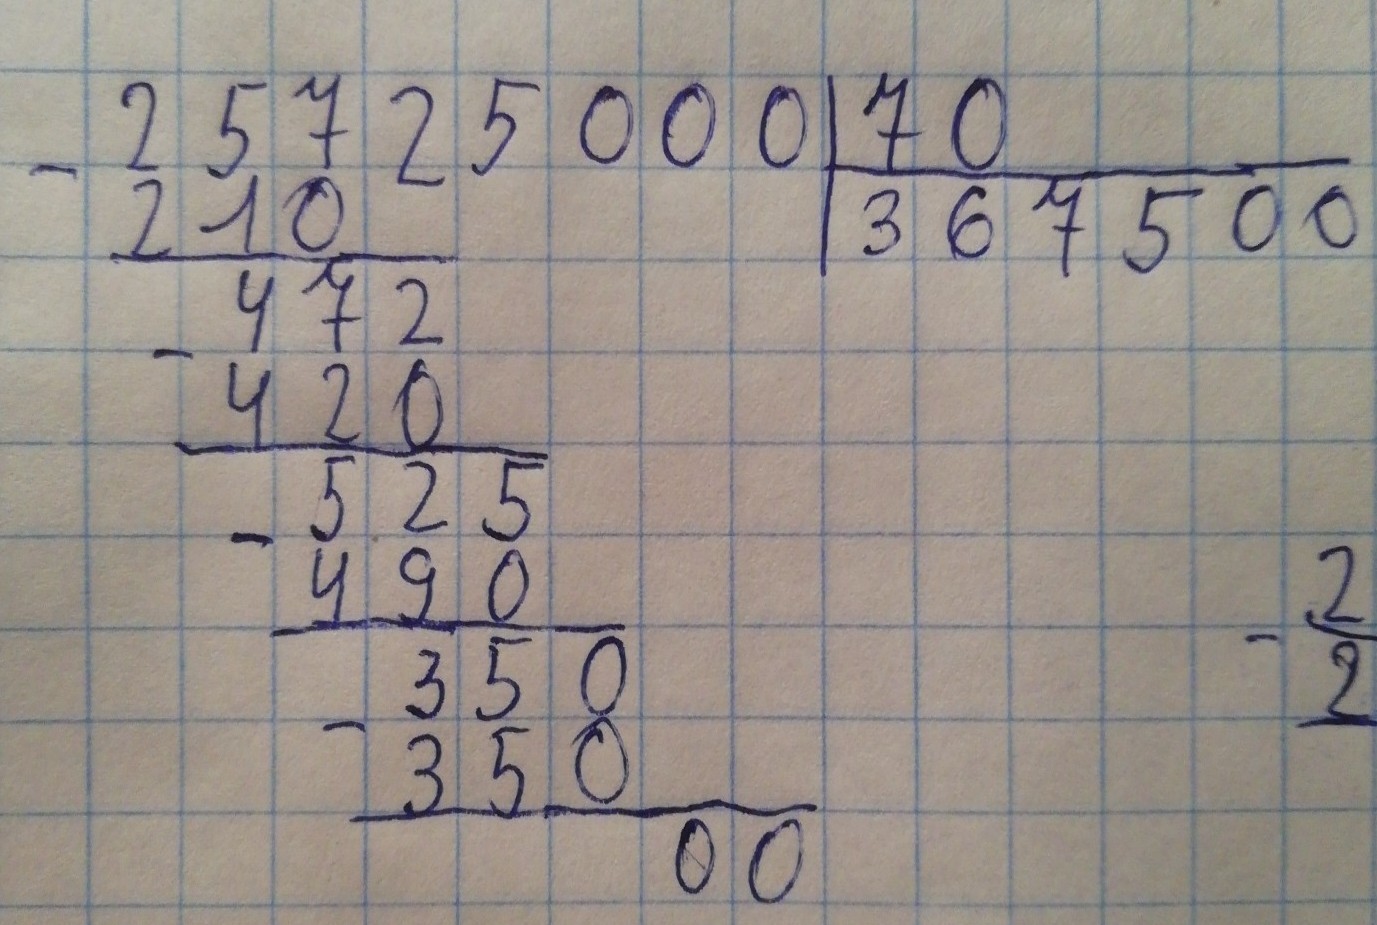 25725000|70
- 210 367500
472
- 420
525
- 490
350
- 350
00
2
- 2